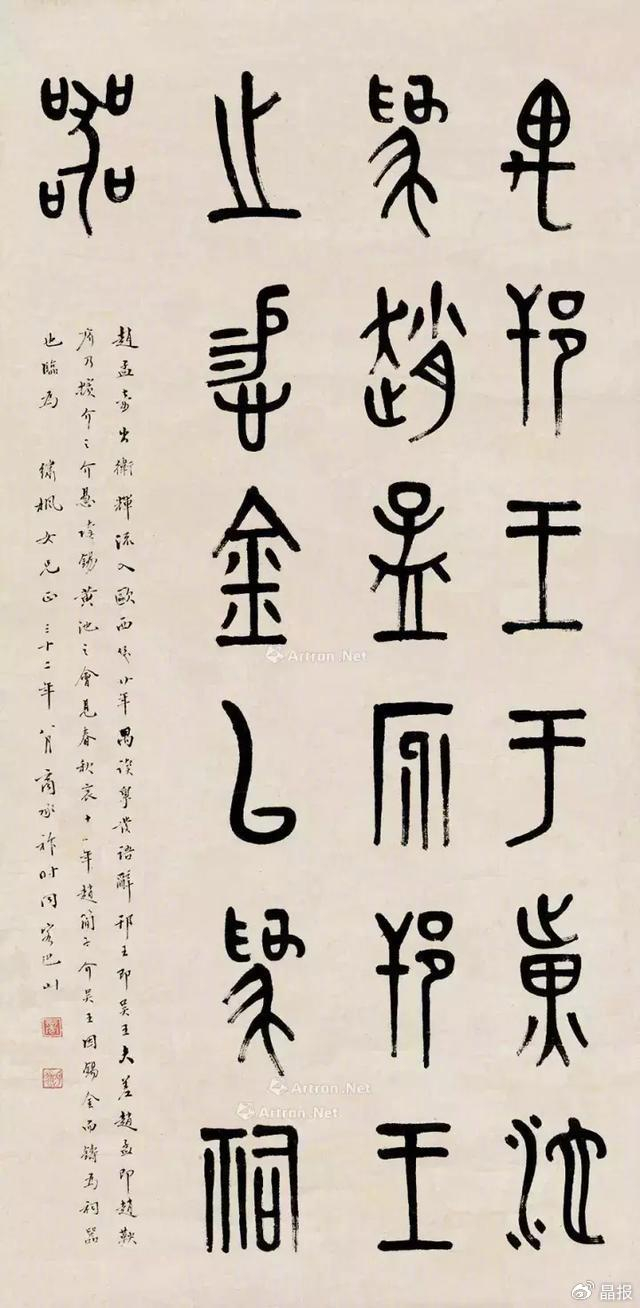 禺邗王于黃池
為趙孟庎邗王
之惕金㠯為祠
器
趙孟壺出衛輝流入歐西幾廿年禺讀粵發語辭邗王即吳王夫差趙孟即趙鞅
庎乃擯介之介惕讀錫黃池之會見春秋哀十一年趙簡子介吳王因錫金而鑄為祠器
也臨為 繡楓女兄正 三十二年八月商承祚時同客巴川
Artron.Net
Artron.Net
Artron.Net
晶报